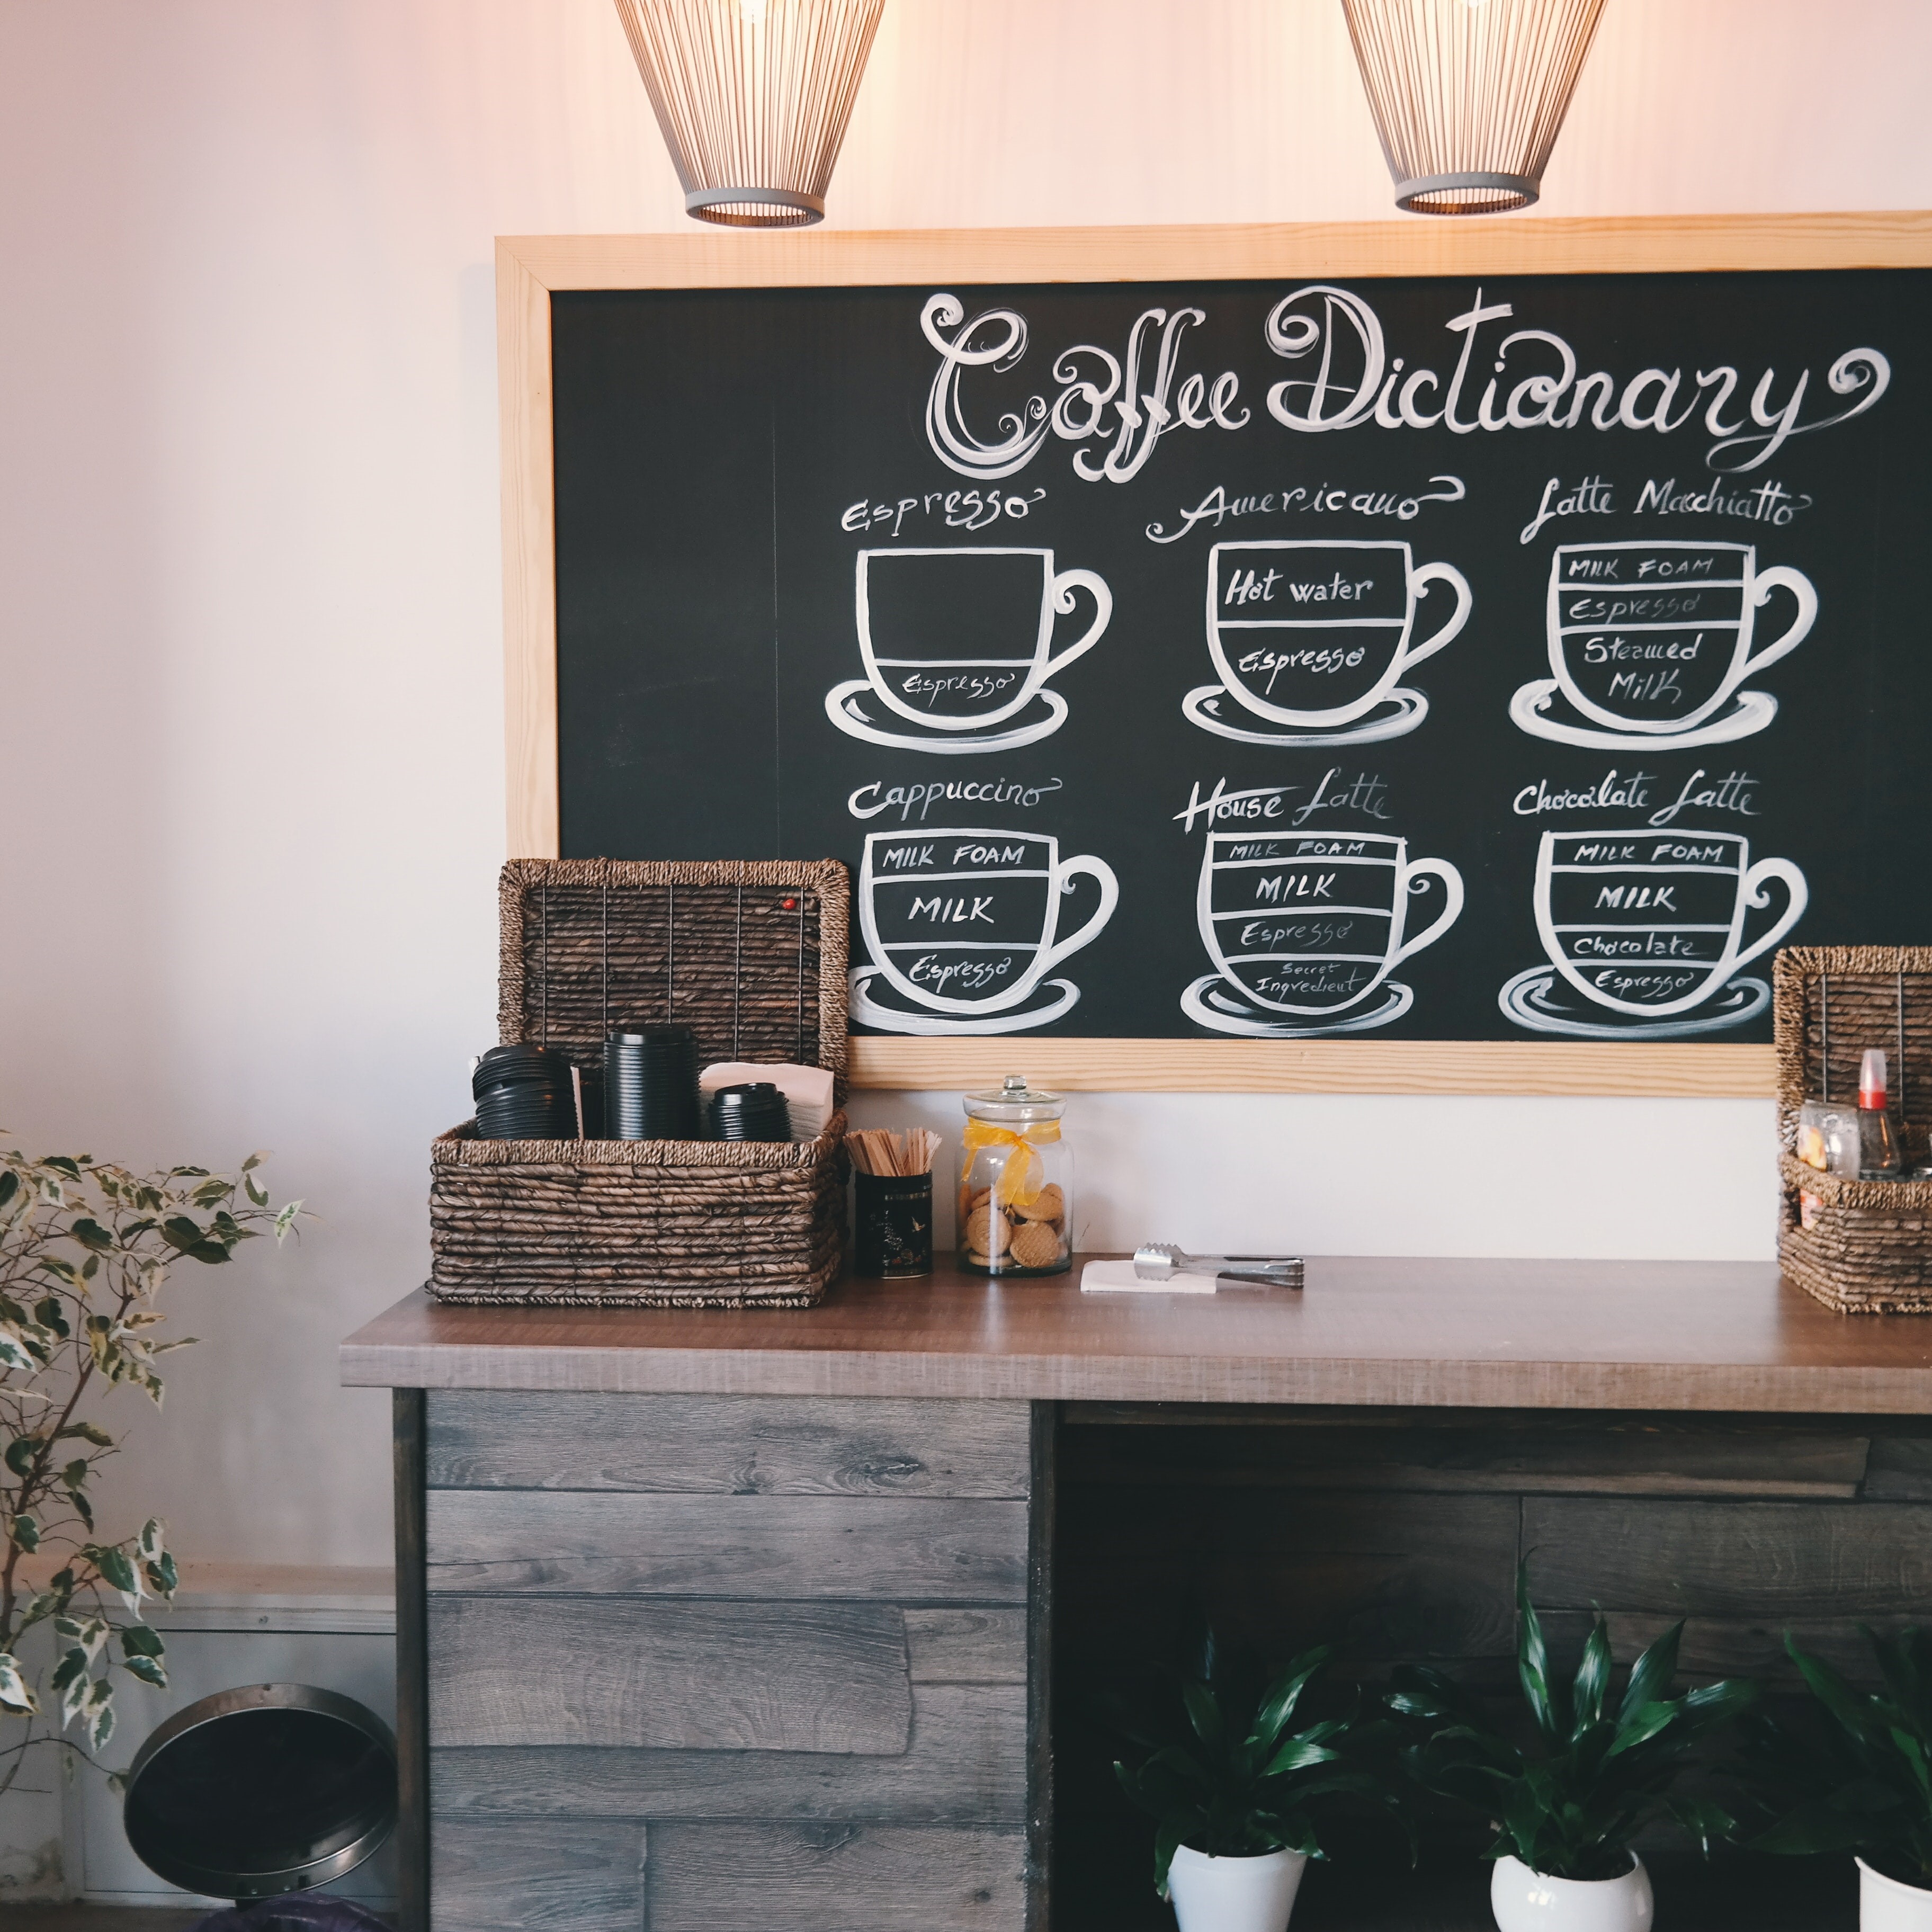 Coffee Dictionary
Espresso
Espresso
Americano
Hot water
Espresso
Latte Macchiatto
MILK FOAM
Espresso
Steamed
Milk
Cappuccino
MILK FOAM
MILK
Espresso
House Latte
MILK FOAM
MILK
Espresso
Secret
Ingredient
Chocolate Latte
MILK FOAM
MILK
Chocolate
Espresso